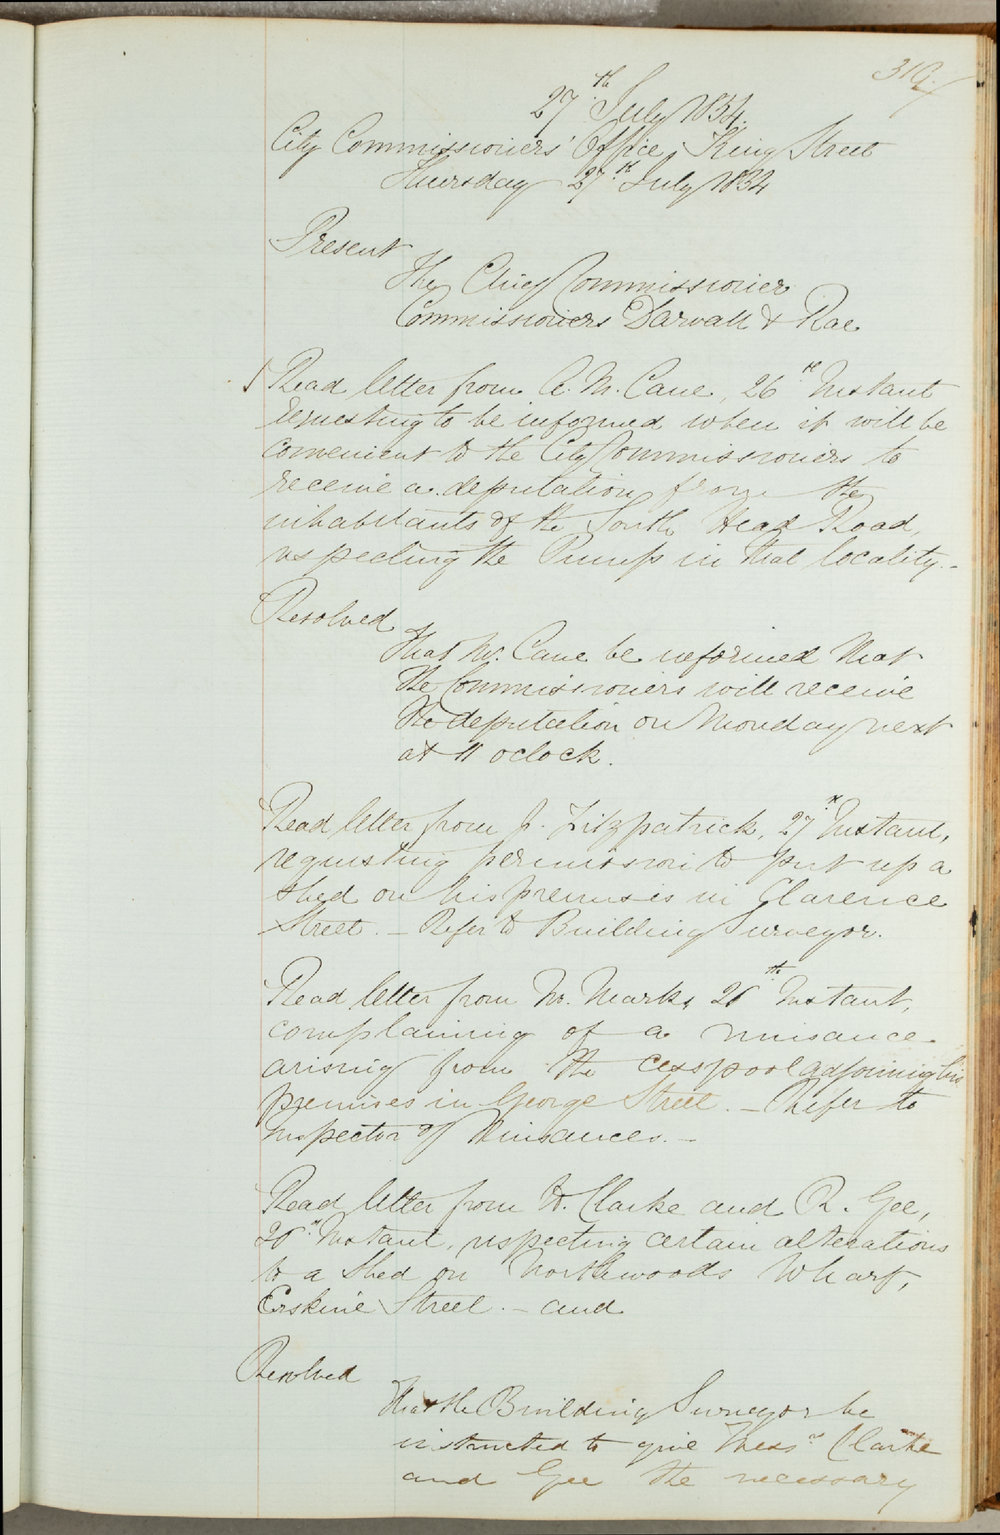 319.
27th July 1854.
City Commissioners' Office, King Street
Thursday 27th July 1854
Present
The Chief Commissioner
Commissioners Darvall & Rae
Read letter from A. M. Cane, 26th Instant
requesting to be informed when it will be
convenient to the City Commissioners to
receive a deputation from the
inhabitants of the South Head Road,
respecting the Pump in that locality.-
Resolved
That Mr. Cane be informed that
the Commissioners will receive
the deputation on Monday next
at 11 oclock.
Read letter from J. Fitzpatrick, 27th Instant,
requesting permission to put up a
shed on his premises in Clarence
Street. - Refer to Building Surveyor.
Read letter from M. Marks, 26th Instant,
complaining of a nuisance
arising from the cesspool adjoining his
premises in George Street. - Refer to
Inspector of Nuisances. -
Read letter from W. Clarke and R. Gee,
26th Instant, respecting certain alterations
to a Shed on Northwoods Wharf,
Erskine Street. - and
Resolved
That the Building Surveyor be
instructed to give Messrs Clarke
and Gee the necessary